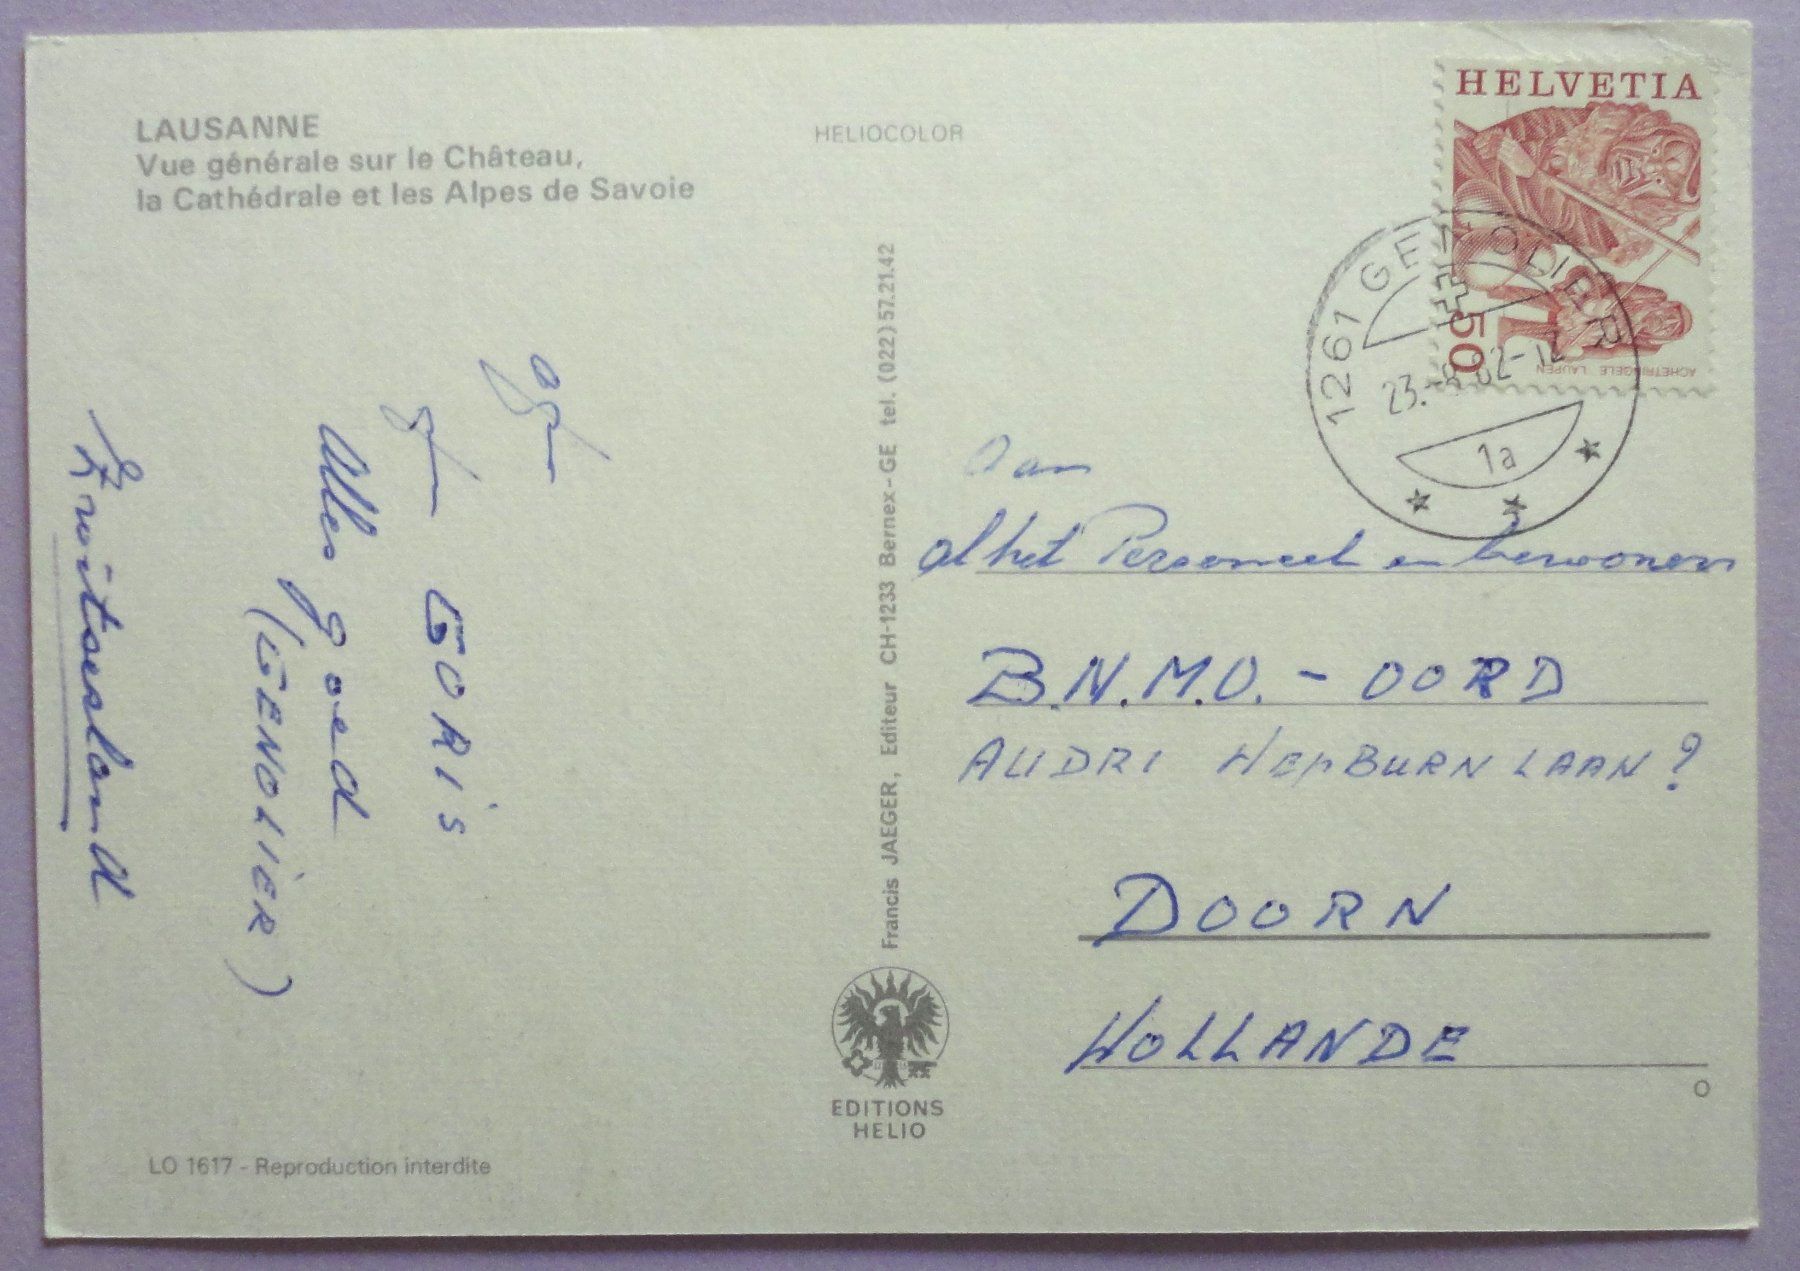 LAUSANNE
Vue générale sur le Château,
la Cathédrale et les Alpes de Savoie
HELIOCOLOR
HELVETIA
50
ACHETRINGELE LAUPEN
1261 GENOLIER
23.-8.82-12
1a
GORIS
Alles goed
(GENOLIER)
Zwitserland
Francis JAEGER, Editeur CH-1233 Bernex-GE tel. (022) 57.21.42
Aan
al het Personeel en bewoners
B.N.M.O. - OORD
AUDRI HEPBURN LAAN?
DOORN
HOLLANDE
EDITIONS
HELIO
LO 1617 - Reproduction interdite